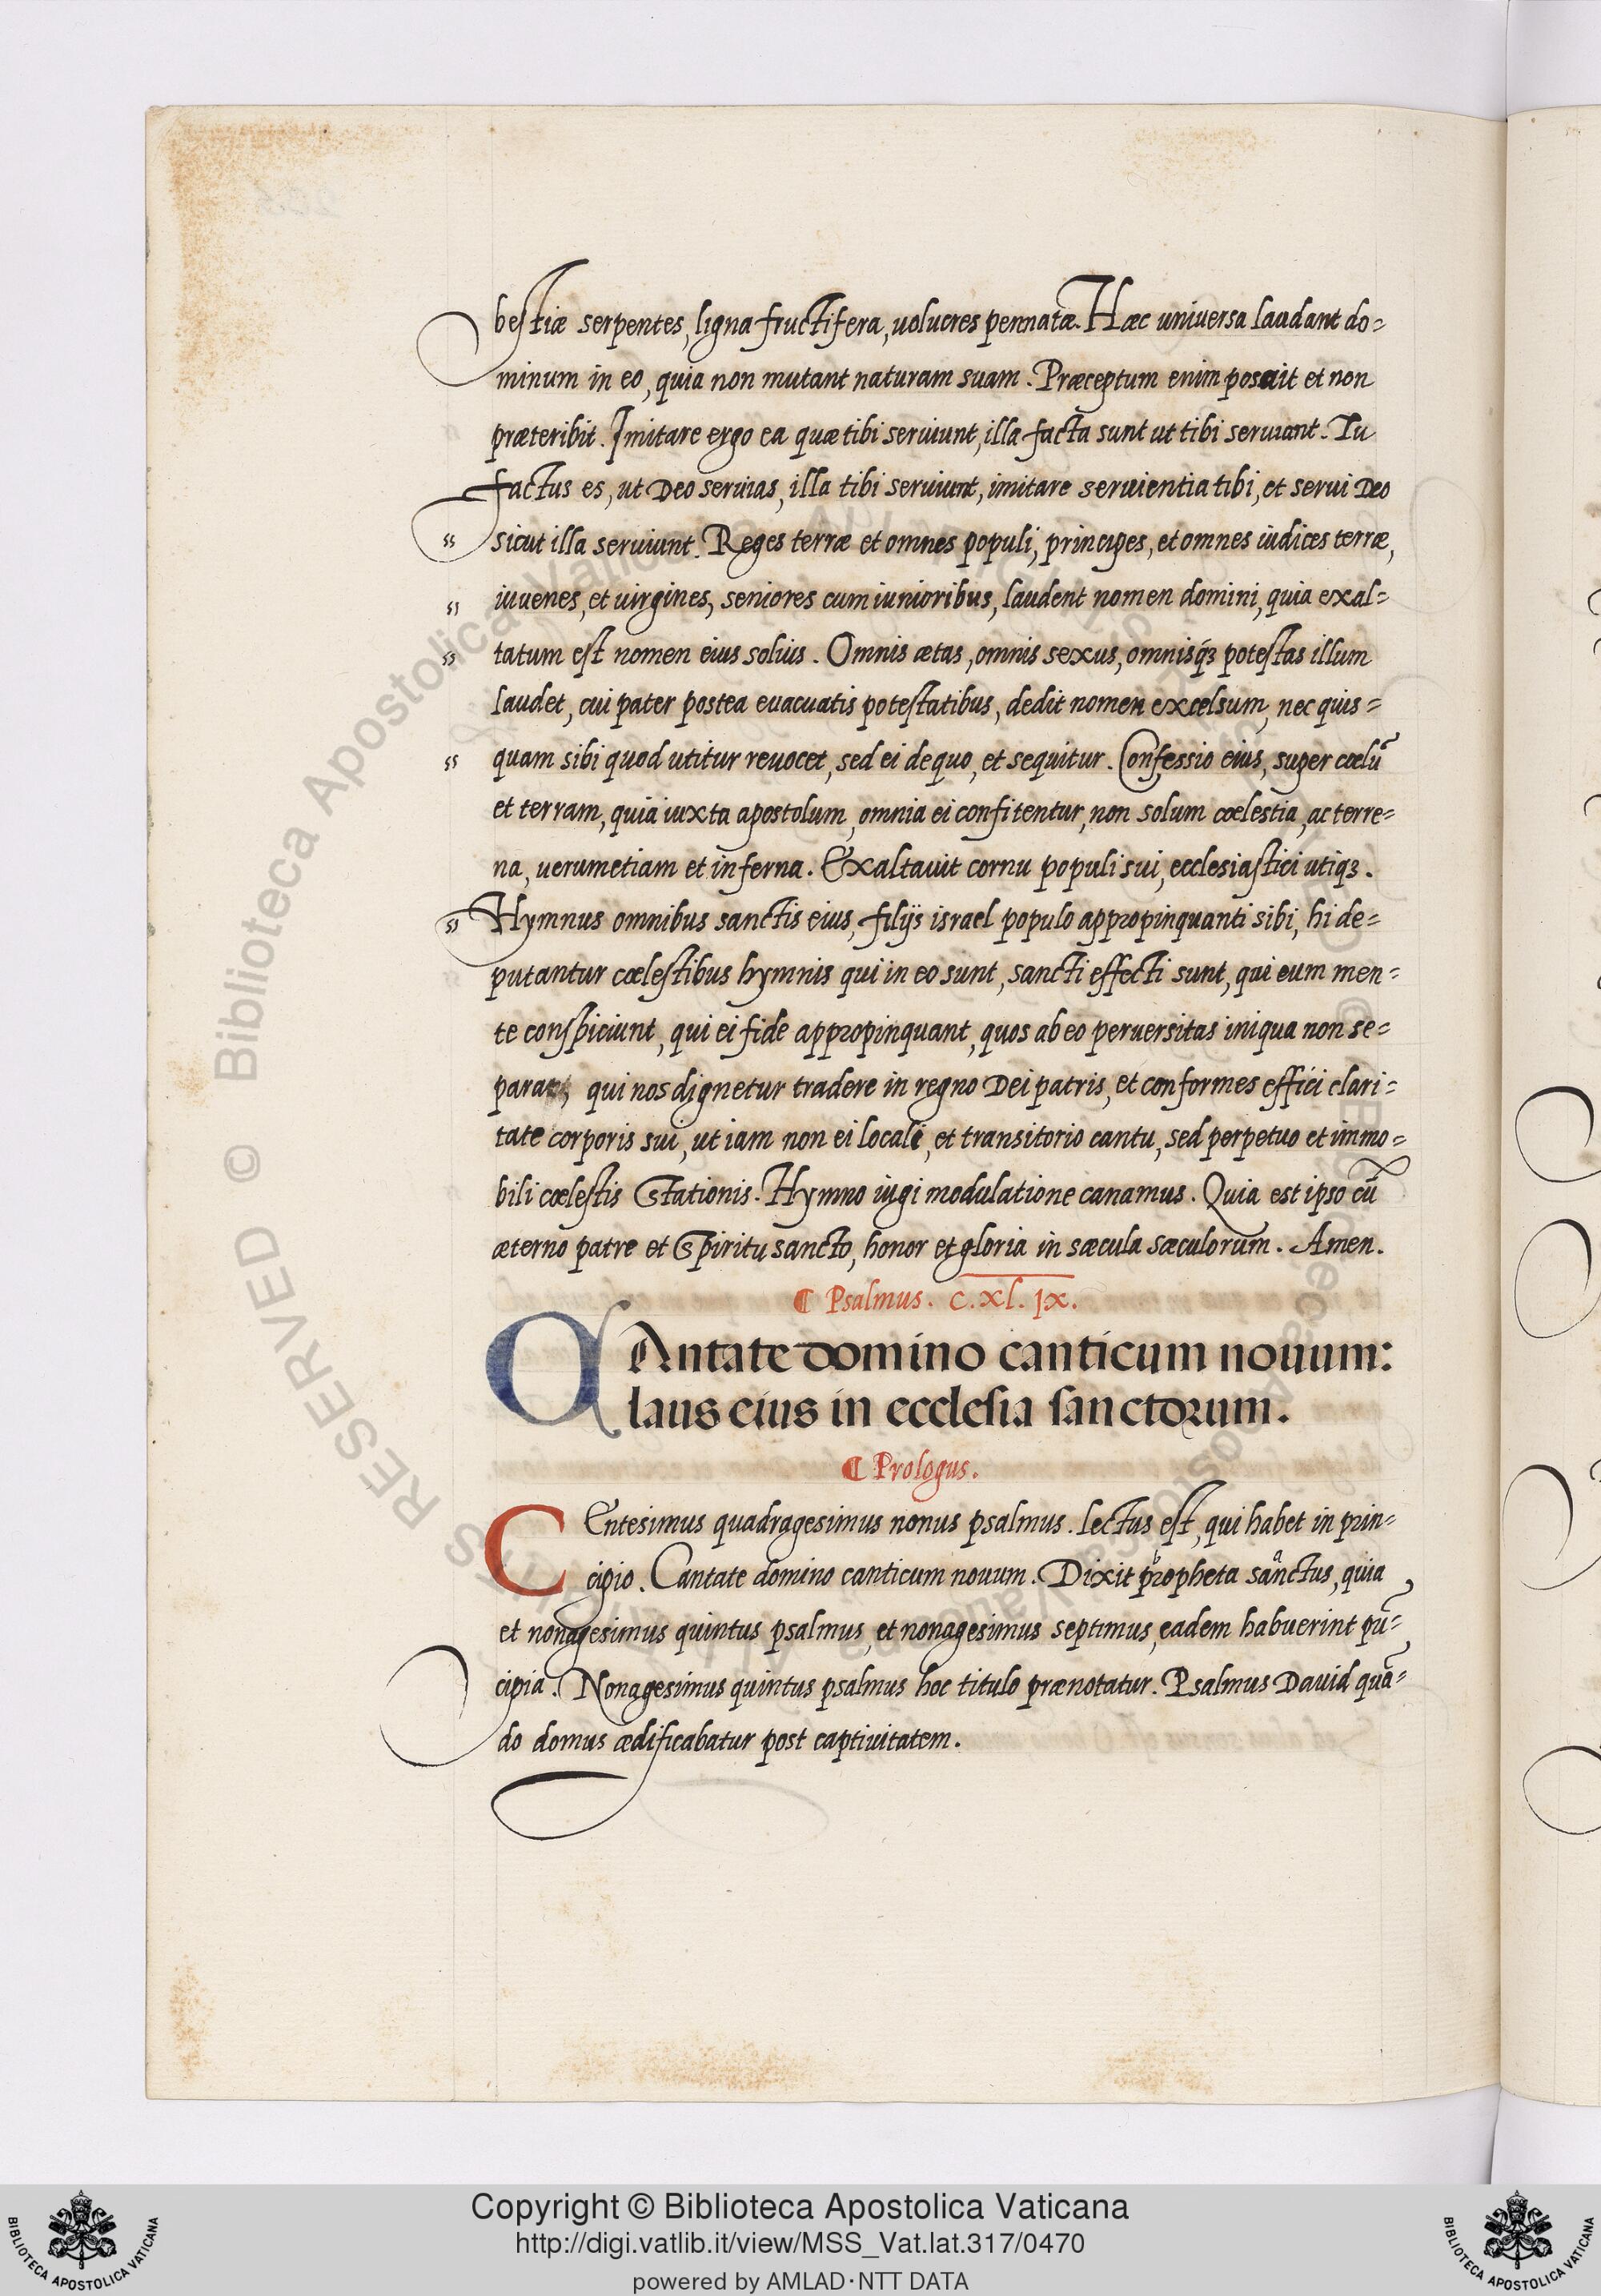 bestiæ serpentes, ligna fructifera, uolucres pennatæ. Hæc uniuersa laudant do=
minum in eo, quia non mutant naturam suam. Præceptum enim posuit et non
præteribit. Imitare ergo ea quæ tibi seruiunt, illa facta sunt ut tibi seruiant. Tu
factus es, ut Deo seruias, illa tibi seruiunt, imitare seruientia tibi, et serui Deo
sicut illa seruiunt. Reges terræ et omnes populi, principes, et omnes iudices terræ,
iuuenes, et uirgines, seniores cum iunioribus, laudent nomen domini, quia exal=
tatum est nomen eius solius. Omnis ætas, omnis sexus, omnisq́ꝫ potestas illum
laudet, cui pater postea euacuatis potestatibus, dedit nomen excelsum, nec quis=
quam sibi quod utitur reuocet, sed ei de quo, et sequitur. Confessio eius, super cœlū
et terram, quia iuxta apostolum, omnia ei confitentur, non solum cœlestia, ac terre=
na, uerumetiam et inferna. Exaltauit cornu populi sui, ecclesiastici utiqꝫ.
Hymnus omnibus sanctis eius, filijs israel populo appropinquanti sibi, hi de=
putantur cœlestibus hymnis qui in eo sunt, sancti effecti sunt, qui eum men=
te conspiciunt, qui ei fide appropinquant, quos ab eo peruersitas iniqua non se=
parat, qui nos dignetur tradere in regno Dei patris, et conformes effici clari=
tate corporis sui, ut iam non ei locali, et transitorio cantu, sed perpetuo et immo=
bili cœlestis Stationis. Hymno iugi modulatione canamus. Quia est ipso cū
æterno patre et Spiritu sancto, honor et gloria in sæcula sæculorum. Amen.
¶ Psalmus. C.XL.IX.
CAntate domino canticum nouum:
laus eius in ecclesia sanctorum.
¶ Prologus.
CEntesimus quadragesimus nonus psalmus. lectus est, qui habet in prin=
cipio. Cantate domino canticum nouum. Dixit propheta sanctus, quia
et nonagesimus quintus psalmus, et nonagesimus septimus, eadem habuerint
cipia. Nonagesimus quintus psalmus hoc titulo prænotatur. Psalmus Dauid quā=
do domus ædificabatur post captiuitatem.
Copyright © Biblioteca Apostolica Vaticana
http://digi.vatlib.it/view/MSS_Vat.lat.317/0470
powered by AMLAD·NTT DATA
BIBLIOTECA APOSTOLICA VATICANA
BIBLIOTECA APOSTOLICA VATICANA